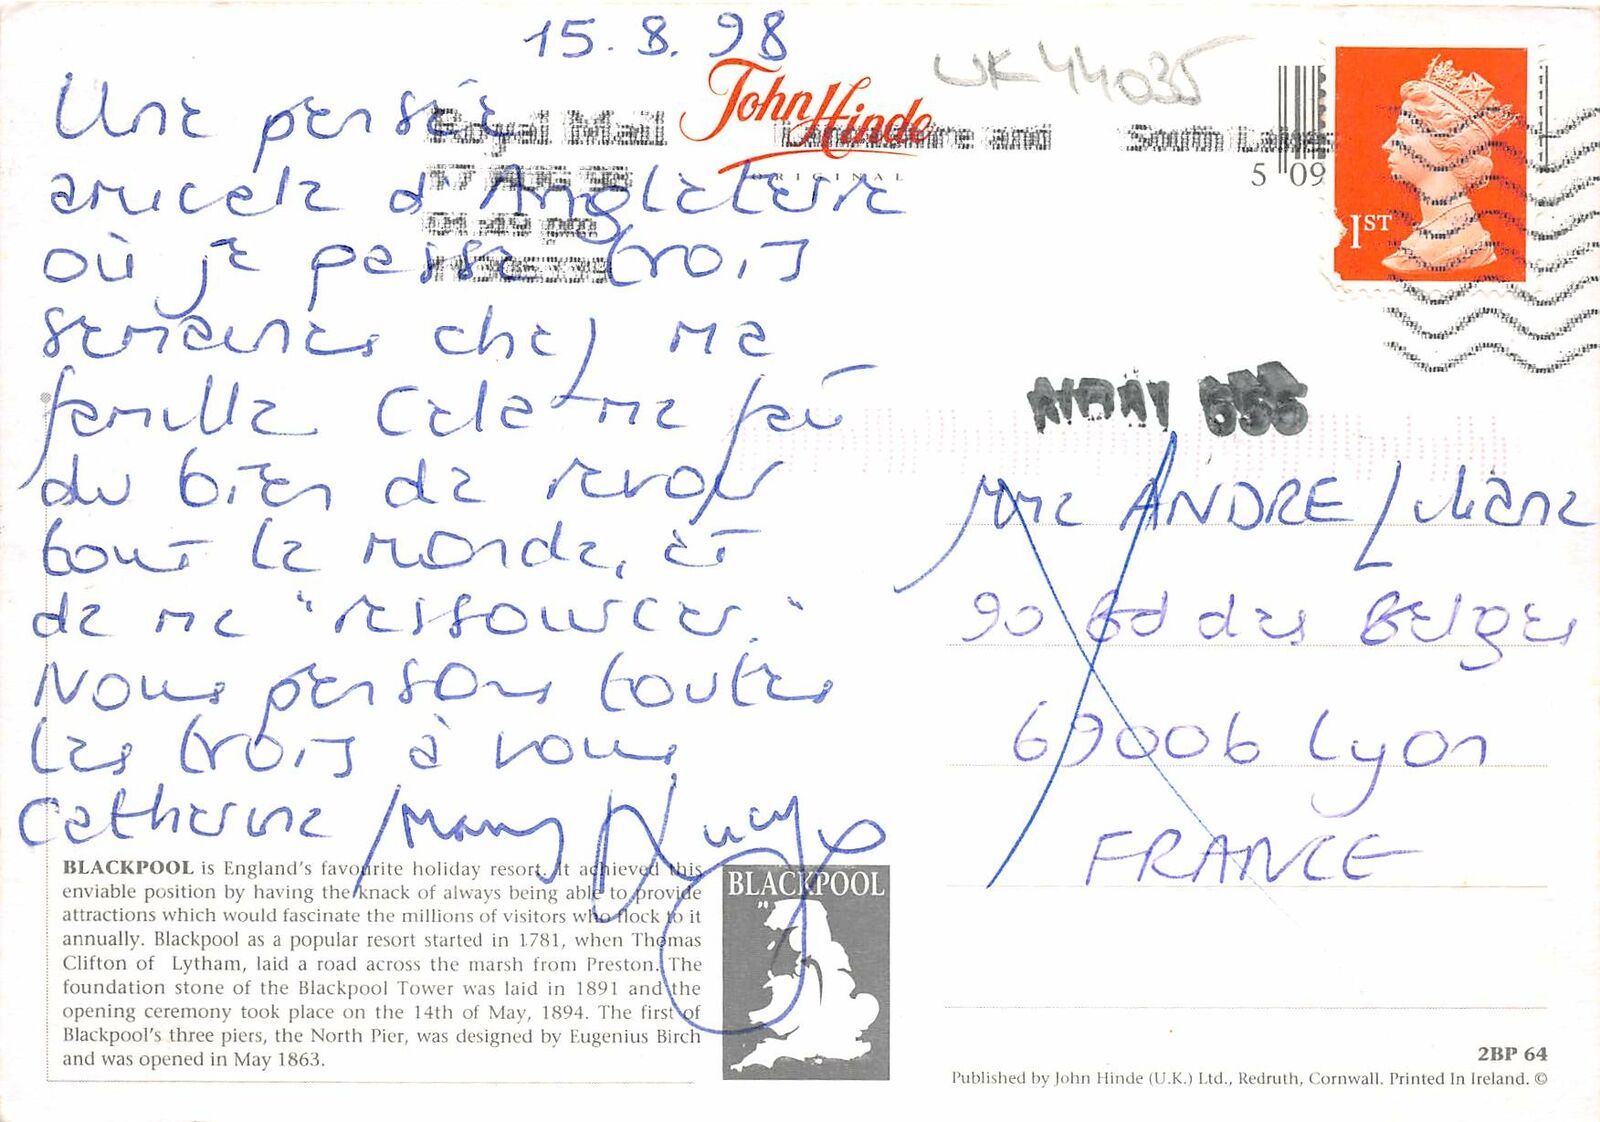 15.8.98
Une pensée
amicale d'Angleterre
où je passe trois
semaines chez ma
famille Cela me fait
du bien de revoir
tout le monde, et
de me "ressourcer."
Nous pensons toutes
les trois à vous
Catherine / Mary Lucy
John Hinde
ORIGINAL
UK44035
Royal Mail Lancashire and South Lakes
5 09
1ST
Mme ANDRE Liliane
90 Bd des Belges
69006 Lyon
FRANCE
BLACKPOOL is England's favourite holiday resort. It achieved this
enviable position by having the knack of always being able to provide
attractions which would fascinate the millions of visitors who flock to it
annually. Blackpool as a popular resort started in 1781, when Thomas
Clifton of Lytham, laid a road across the marsh from Preston. The
foundation stone of the Blackpool Tower was laid in 1891 and the
opening ceremony took place on the 14th of May, 1894. The first of
Blackpool's three piers, the North Pier, was designed by Eugenius Birch
and was opened in May 1863.
BLACKPOOL
2BP 64
Published by John Hinde (U.K.) Ltd., Redruth, Cornwall. Printed In Ireland. ©